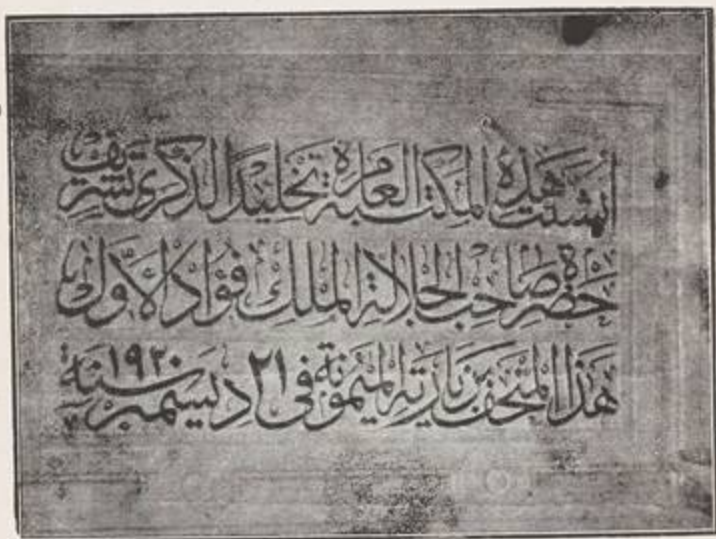 أنشئت هذه المكتبة العامرة تخليدا لذكرى تشريف
حضرة صاحب الجلالة الملك فؤاد الأول
هذا المتحف بزيارته الميمونة في ٢١ ديسمبر سنة ١٩٢٠